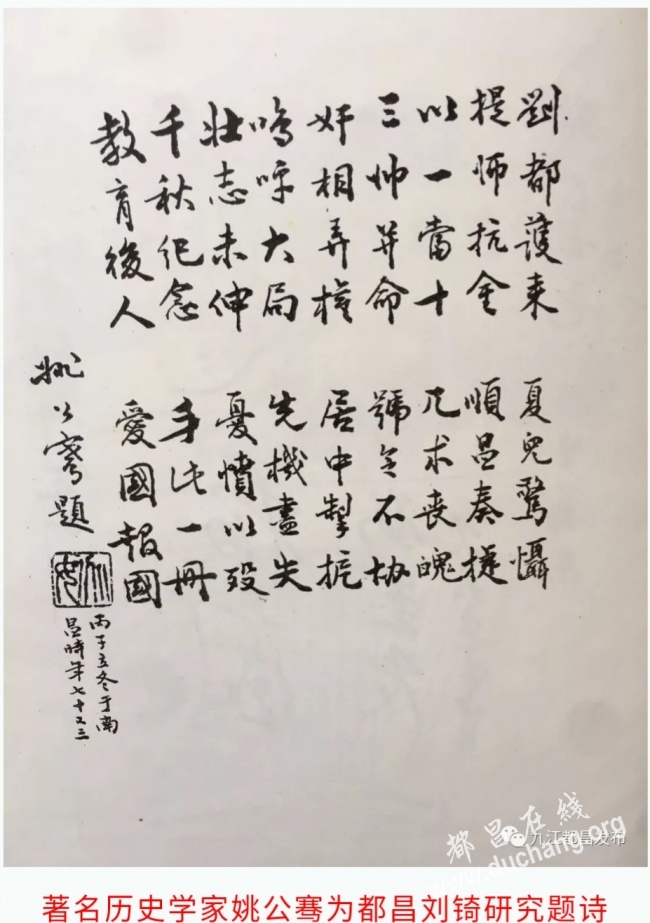 劉都護来 夏兒驚懾
提师抗金 順昌奏捷
以一當十 兀术丧魄
三帅并命 號令不协
奸相弄權 居中掣扼
嗚呼大局 先機盡失
壮志未伸 憂憤以殁
千秋纪念 手此一冊
教育後人 愛國報國
姚公骞題
丙子立冬于南
昌時年七十又三
都昌在线
www.duchang.org
九江都昌发布
著名历史学家姚公骞为都昌刘锜研究题诗